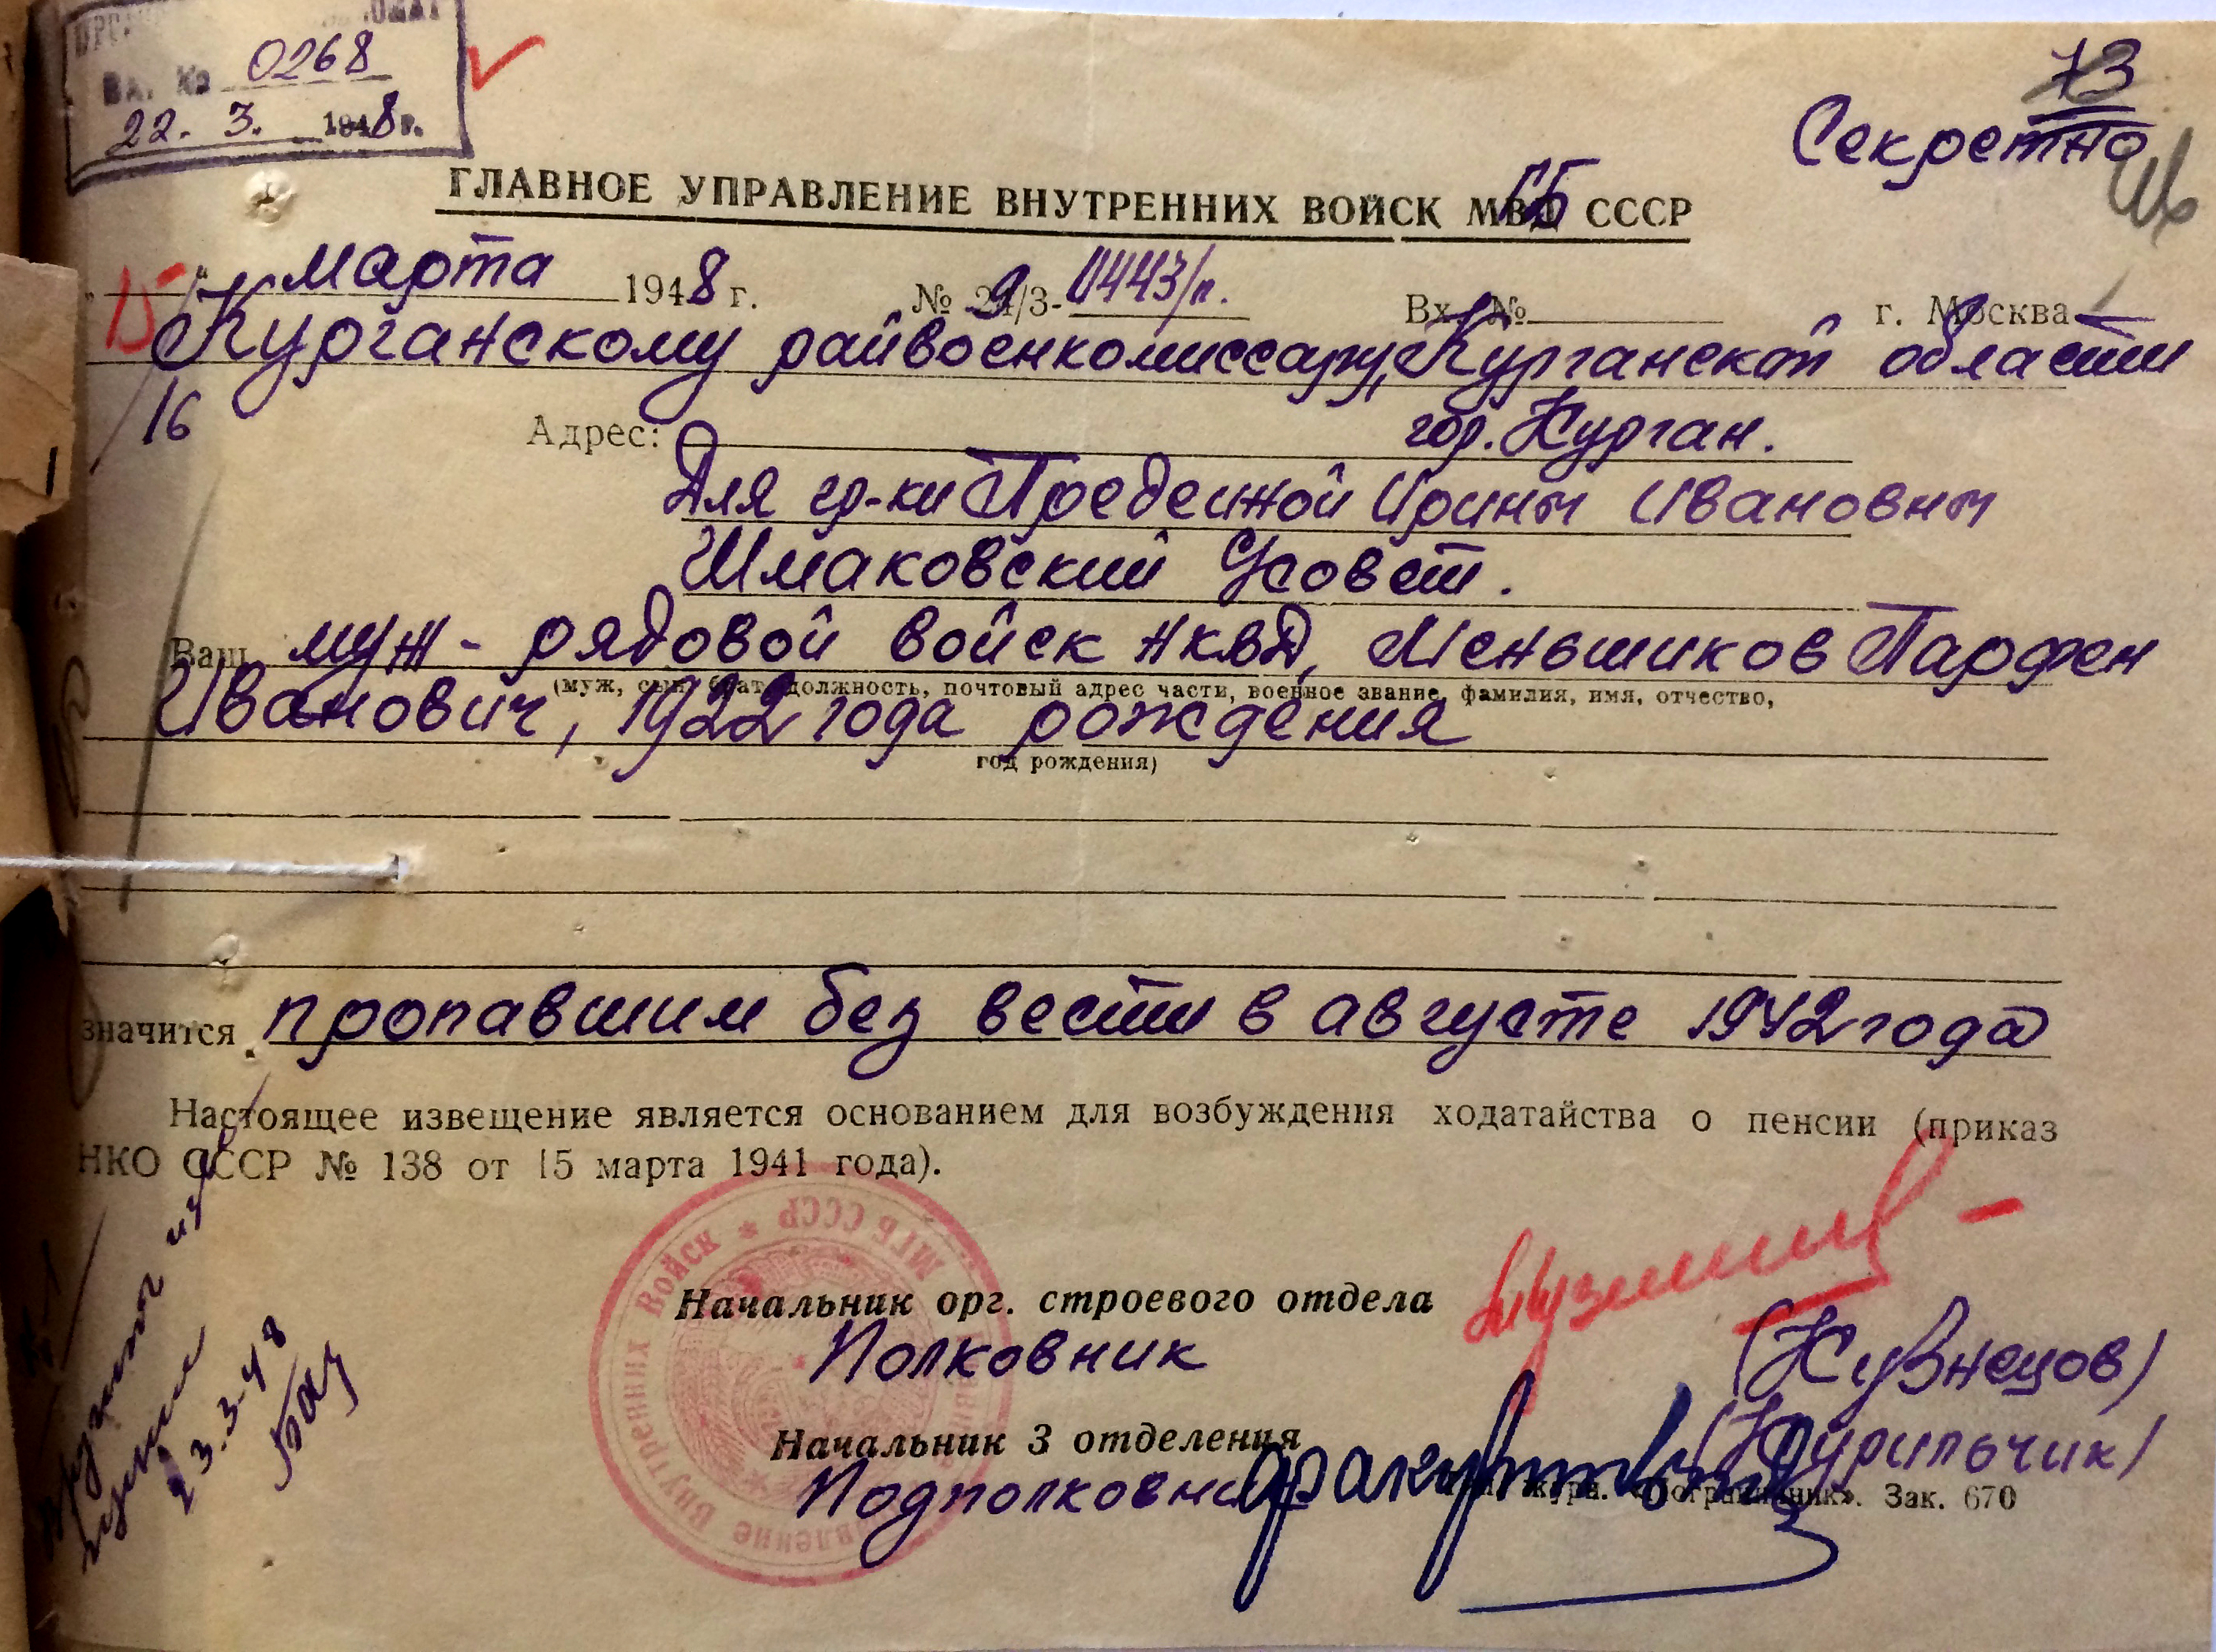 Вх. № 0268
22. 3. 1948 г.
73
Секретно
ГЛАВНОЕ УПРАВЛЕНИЕ ВНУТРЕННИХ ВОЙСК МГБ СССР
марта 1948 г. № 9/3- 0443/п. Вх. № г. Москва
Курганскому райвоенкомиссару, Курганской области
16
Адрес: гор. Курган.
Для гр-ки Предеиной Ирины Ивановны
Шмаковский с/совет.
Ваш муж - рядовой войск НКВД, Меньшиков Парфен
(муж, сын, брат, должность, почтовый адрес части, военное звание, фамилия, имя, отчество,
Иванович, 1922 года рождения
год рождения)
значится пропавшим без вести в августе 1942 года
Настоящее извещение является основанием для возбуждения ходатайства о пенсии (приказ
НКО СССР № 138 от 15 марта 1941 года).
Внутренних Войск * МГБ СССР
Начальник орг. строевого отдела
Полковник (Кузнецов)
Начальник 3 отделения
Подполковник (Курильчик)
журн. «Пограничник». Зак. 670
23.3.48